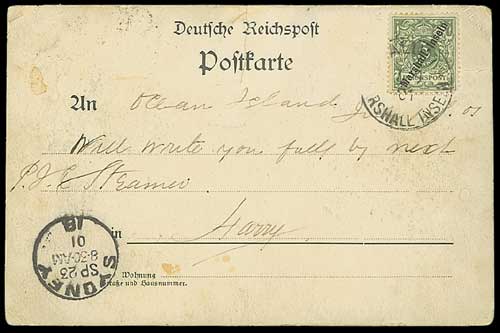 Deutsche Reichspost
Postkarte
REICHSPOST
Marshall-Inseln
RSHALL INSE
An Ocean Island 01
Will write you fully by next
P.I.C Steamer
in Harry
SYDNEY
SP 23
8-30 AM
01
18
Wohnung
Straße und Hausnummer.